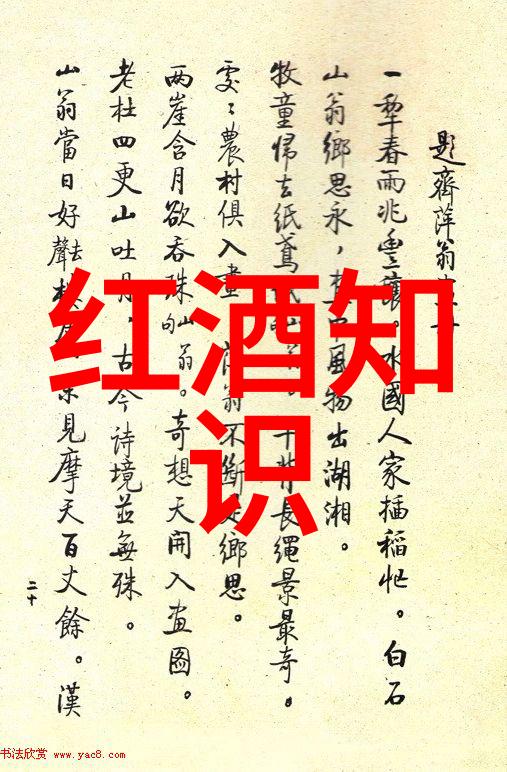 题齊萍翁畫
一犂春雨兆豐穰。水國人家插稻忙。白石
山翁鄉思永，風物出湖湘。
牧童歸去紙鳶背長繩景最奇。
處〻農村俱入畫萍翁不斷是鄉思。
兩崖含月欲吞珠句山翁。奇想天開入畫圖。
老杜四更山吐月，古今詩境並無殊。
山翁當日好聲去見摩天百丈餘。漢
二十
红酒知
识
书法欣赏 www.yac8.com